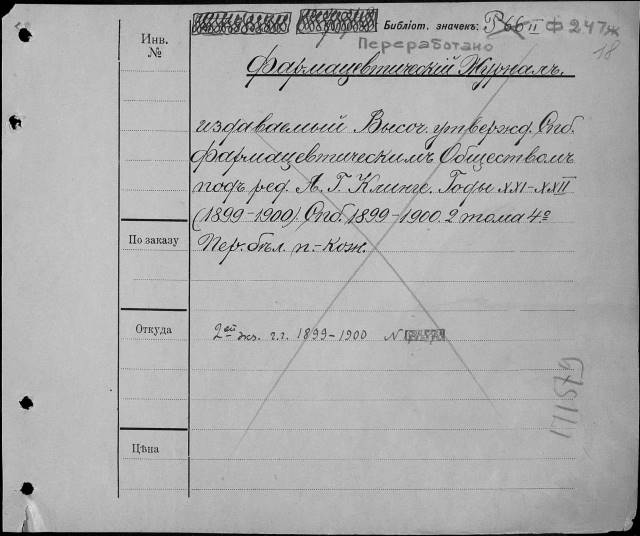 Библіот. значекъ: Р 66 II Ф 247ж
18
Переработано
Инв.
№
Фармацевтическій Журналъ,
издаваемый Высоч. утвержд. Спб.
фармацевтическимъ Обществомъ
подъ ред. А. Г. Клинге. Годы XXI–XXII
(1899–1900). Спб. 1899–1900. 2 тома 4º
По заказу
Пер. бѣл. п.-кож.
Откуда
2ой экз. г.г. 1899–1900 N
171579
Цѣна